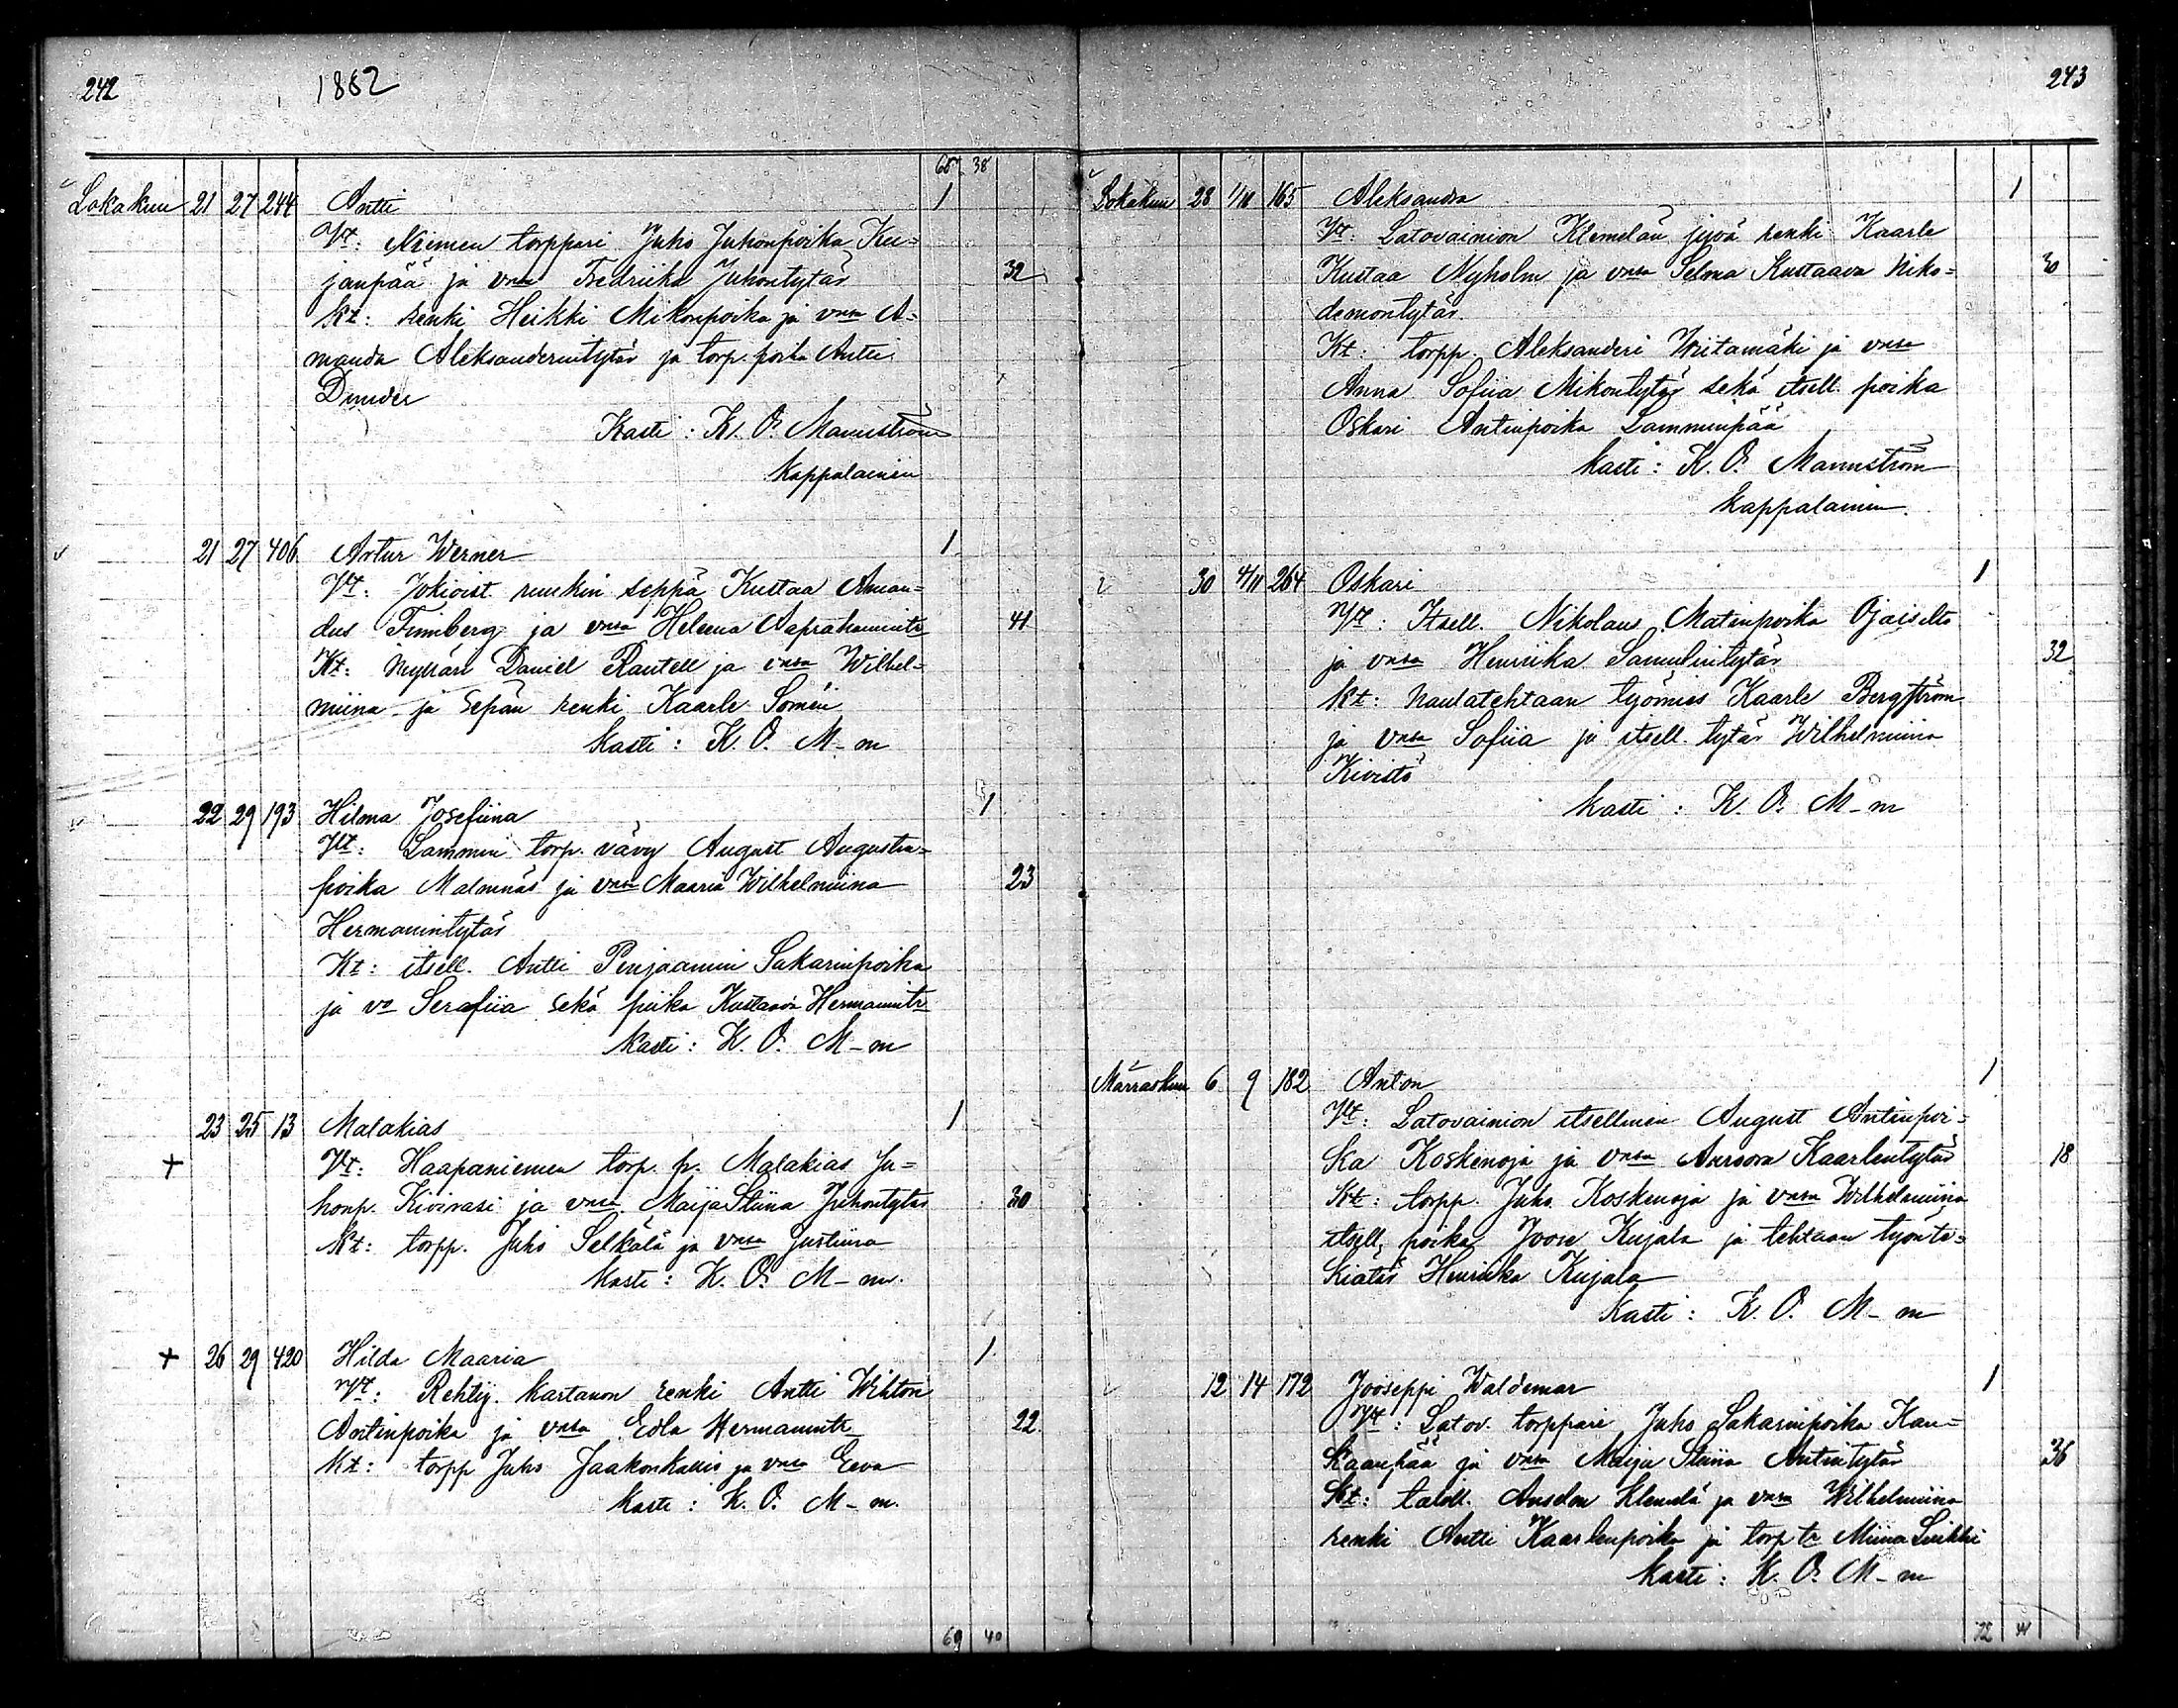 242
1882
66 38
Lokakuu 21 27 244 Antti 1
Vt: Niemen torppari Juho Juhonpoika Ku-
janpää ja vmsa Fredriika Juhontytär 32
Kt: renki Heikki Mikonpoika ja vmsa A-
manda Aleksanderintytär ja torp. poika Antti
Dunder
Kasti: K. O. Mannström
Kappalainen
21 27 406 Artur Werner 1
Vt: Jokioist. ruukin seppä Kustaa Aman-
dus Finnberg ja vmsa Helena Aaprahamintr 41
Kt: Mylläri Daniel Rautell ja vmsa Wilhel-
miina ja Sepän renki Kaarle Somén
Kasti: K. O. M-m
22 29 193 Hilma Josefiina 1
Vt: Lammin torp. vävy August Augustin-
poika Malmnäs ja vmsa Maaria Wilhelmiina 23
Hermanintytär
Kt: itsell. Antti Penjaamin Sakarinpoika
ja vo Serafiia sekä piika Kustaava Hermanintr
Kasti: K. O. M-m
23 25 13 Malakias 1
+ Vt: Haapaniemen torp. p. Malakias Ju-
honp. Kivivasi ja vmsa Maija Stiina Juhontytär 30
Kt: torpp. Juho Selkälä ja vmsa Justiina
Kasti: K. O. M-m.
+ 26 29 420 Hilda Maaria 1
Vt: Rehtij. Kartanon renki Antti Wihtori
Antinpoika ja vmsa Edla Hermanintr 22.
Kt: torpp Juho Jaakonkallio ja vmsa Eeva
Kasti: K. O. M-m.
69 40
243
Lokakuu 28 1/11 165 Aleksandra 1
Vt: Latovainion Klemelän jyvä renki Kaarle
Kustaa Nyholm ja vmsa Selma Kustaava Niko- 30
demontytär.
Kt: torpp. Aleksanderi Wiitamäki ja vmsa
Anna Sofiia Mikontytär sekä itsell. poika
Oskari Antinpoika Lamminpää
Kasti: K. O. Mannström
Kappalainen.
30 4/11 264 Oskari 1
Vt: Itsell. Nikolaus Matinpoika Ojaiselta
ja vmsa Henriika Samulintytär 32
Kt: Naulatehtaan työmies Kaarle Bergström
ja vmsa Sofiia ja itsell. tytär Wilhelmiina
Kivistö
Kasti: K. O. M-m
Marraskuu 6 9 182 Anton 1
Vt: Latovainion itsellinen August Antinpoi-
ka Koskinoja ja vmsa Auroora Kaarlentytär 18
Kt: torpp. Juho Koskenoja ja vmsa Wilhelmiina
itsell, poika Joose Kujala ja tehtaan työnte-
kiätär Henriika Kujala
Kasti: K. O. M-m
12 14 172 Jooseppi Waldemar 1
Vt: Latov. torppari Juho Sakarinpoika Kan-
kaanpää ja vmsa Maija Stiina Antintytär 36
Kt: taloll. Anselm Klemelä ja vmsa Wilhelmiina
renki Antti Kaarlenpoika ja torp tr Miina Suikki
Kasti: K. O. M-m
72 41